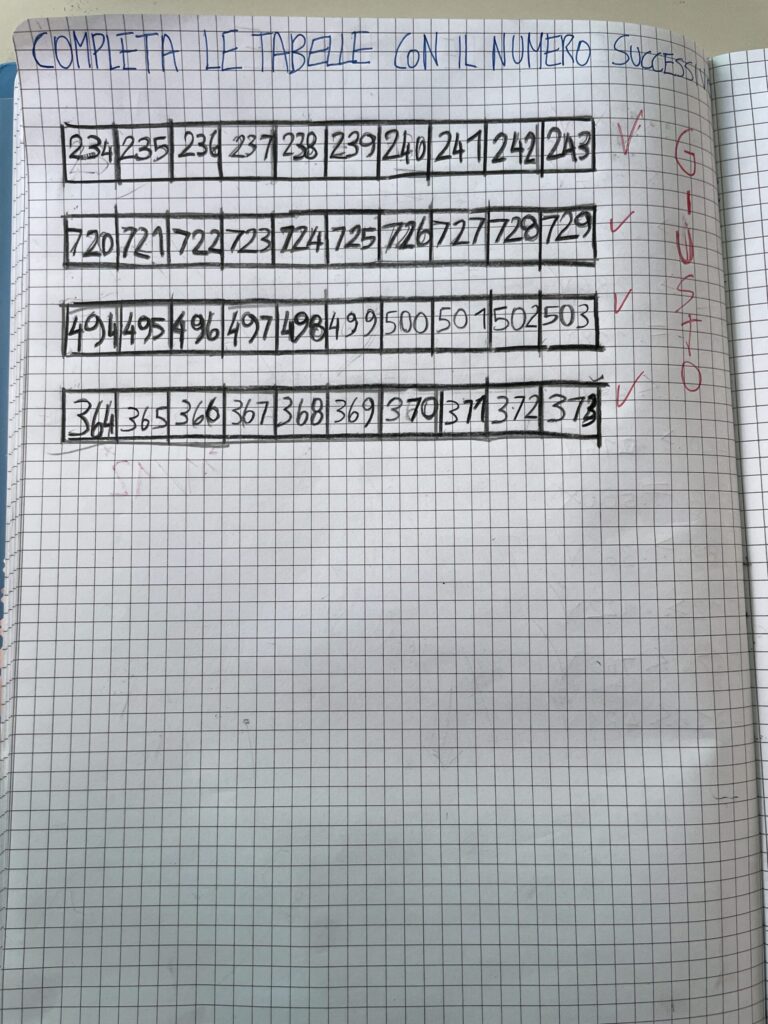 COMPLETA LE TABELLE CON IL NUMERO SUCCESSIV
234 235 236 237 238 239 240 241 242 243
720 721 722 723 724 725 726 727 728 729
494 495 496 497 498 499 500 501 502 503
364 365 366 367 368 369 370 371 372 373
GIUSTO